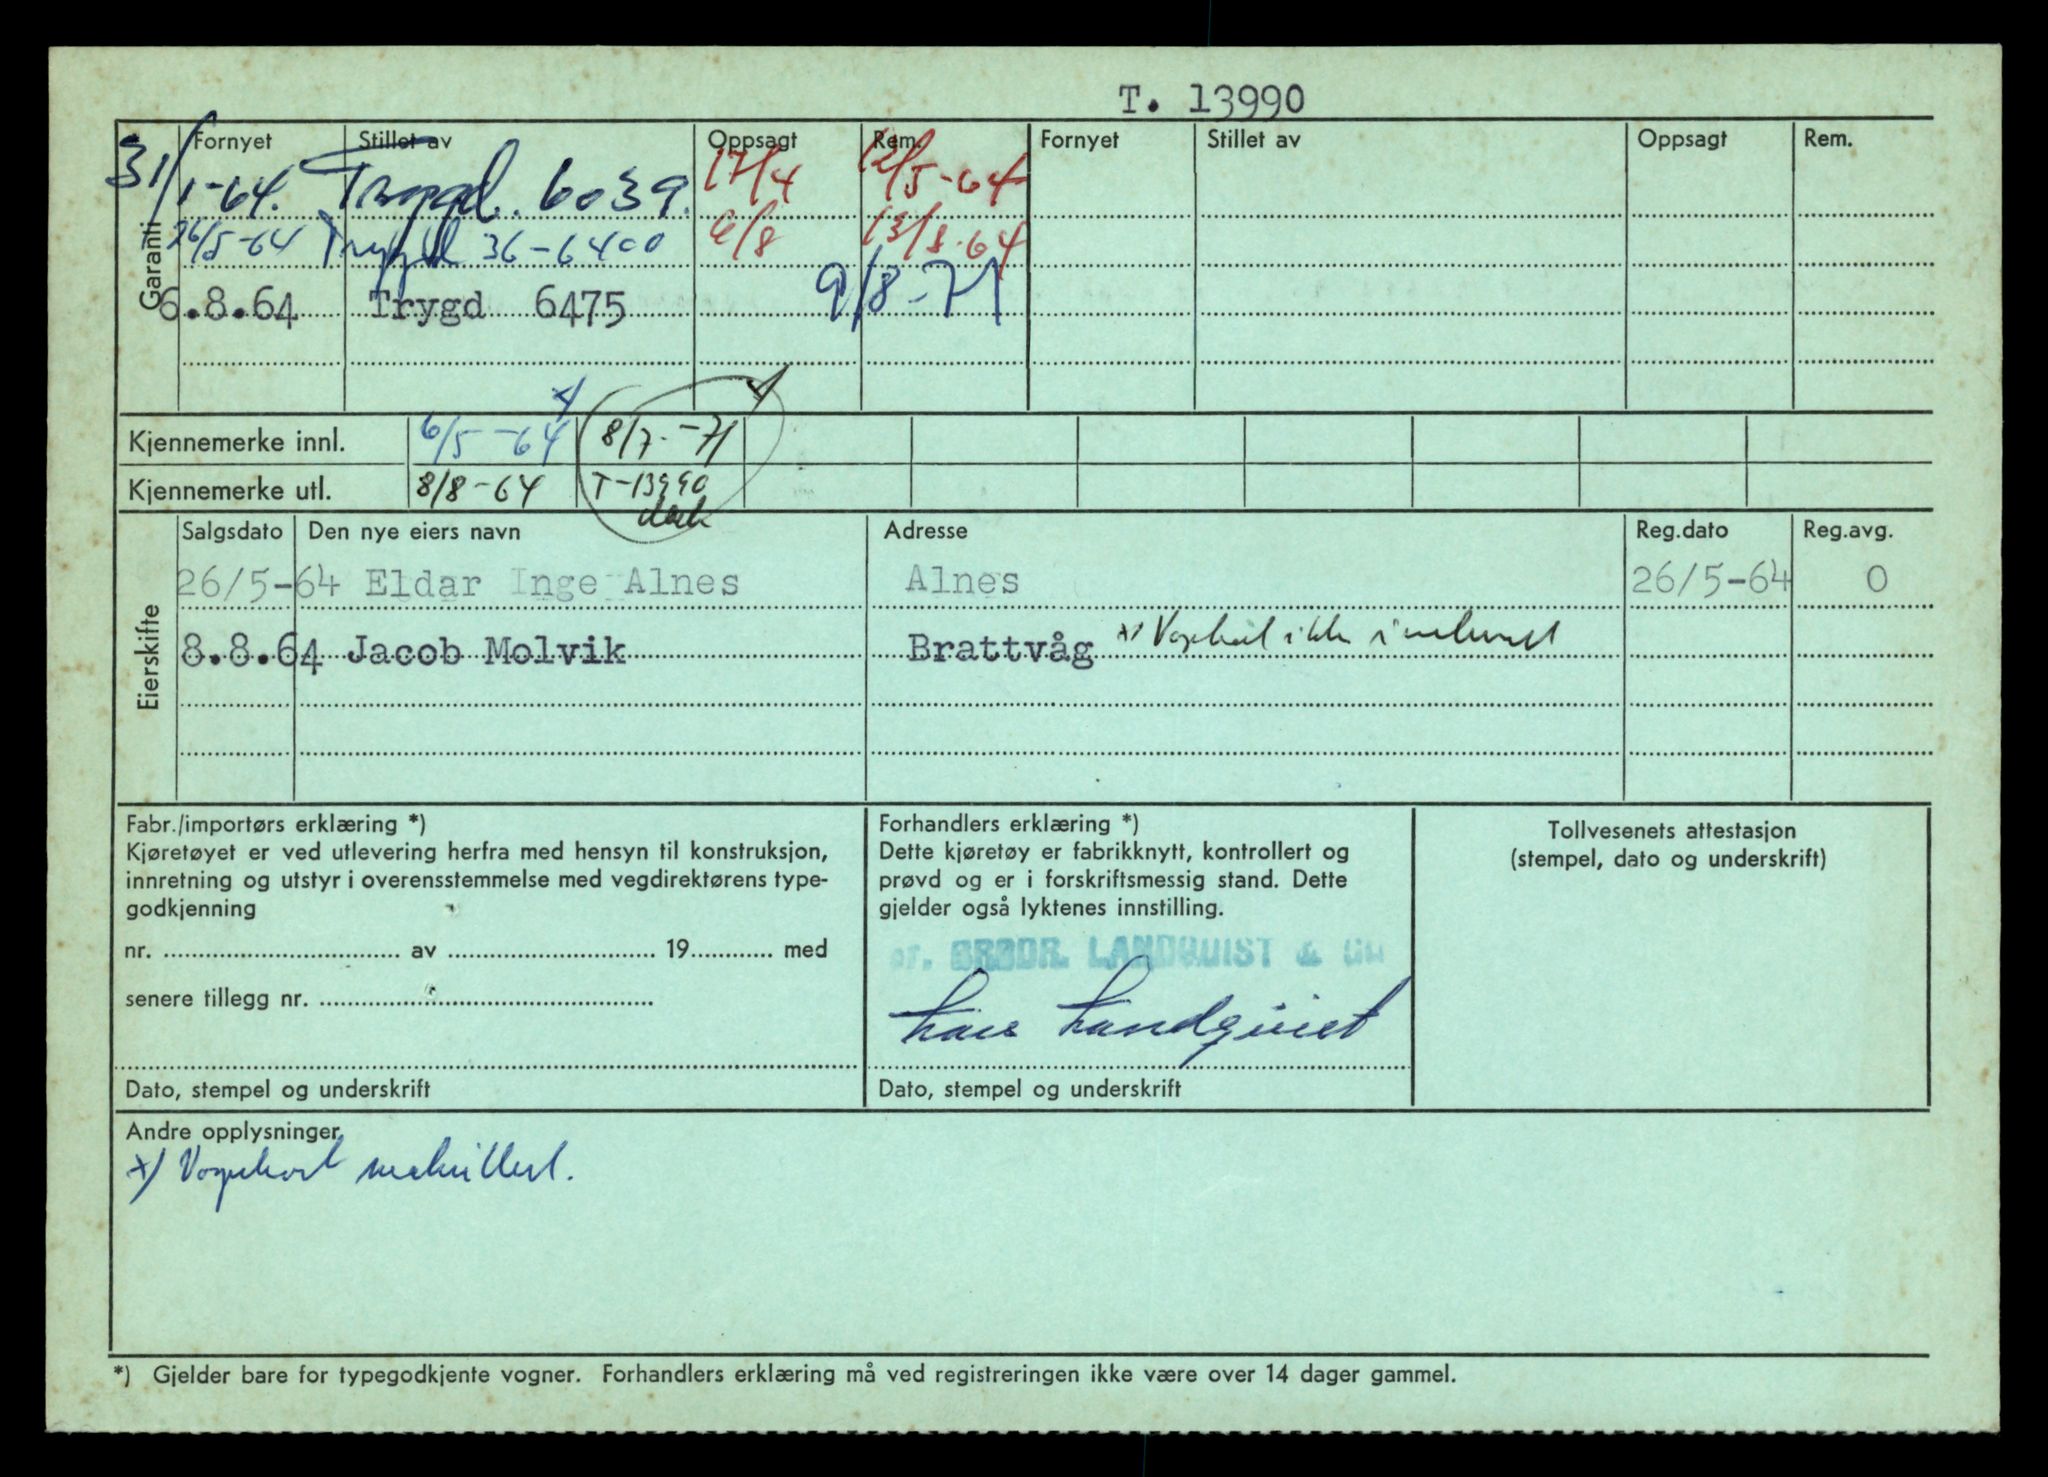 T. 13990
Fornyet Stillet av Oppsagt Rem. Fornyet Stillet av Oppsagt Rem.
31/1-64. Trygd. 6039. 17/4 12/5-64
26/5-64 Trygd 36-6400 6/8 13/8-64
6.8.64 Trygd 6475 9/8-71
Garanti
Kjennemerke innl. 6/5-64 x) 8/7-71 x)
Kjennemerke utl. 8/8-64 T-13990
Eierskifte
Salgsdato Den nye eiers navn Adresse Reg.dato Reg.avg.
26/5-64 Eldar Inge Alnes Alnes 26/5-64 0
8.8.64 Jacob Molvik Brattvåg x) Vognkort ikke innlevert
Fabr./importørs erklæring *)
Kjøretøyet er ved utlevering herfra med hensyn til konstruksjon,
innretning og utstyr i overensstemmelse med vegdirektørens type-
godkjenning
nr. av 19 med
senere tillegg nr.
Dato, stempel og underskrift
Forhandlers erklæring *)
Dette kjøretøy er fabrikknytt, kontrollert og
prøvd og er i forskriftsmessig stand. Dette
gjelder også lyktenes innstilling.
pr. BRØDR. LANDQUIST & CO
Lars Landquist
Dato, stempel og underskrift
Tollvesenets attestasjon
(stempel, dato og underskrift)
Andre opplysninger
x) Vognkort makulert.
*) Gjelder bare for typegodkjente vogner. Forhandlers erklæring må ved registreringen ikke være over 14 dager gammel.